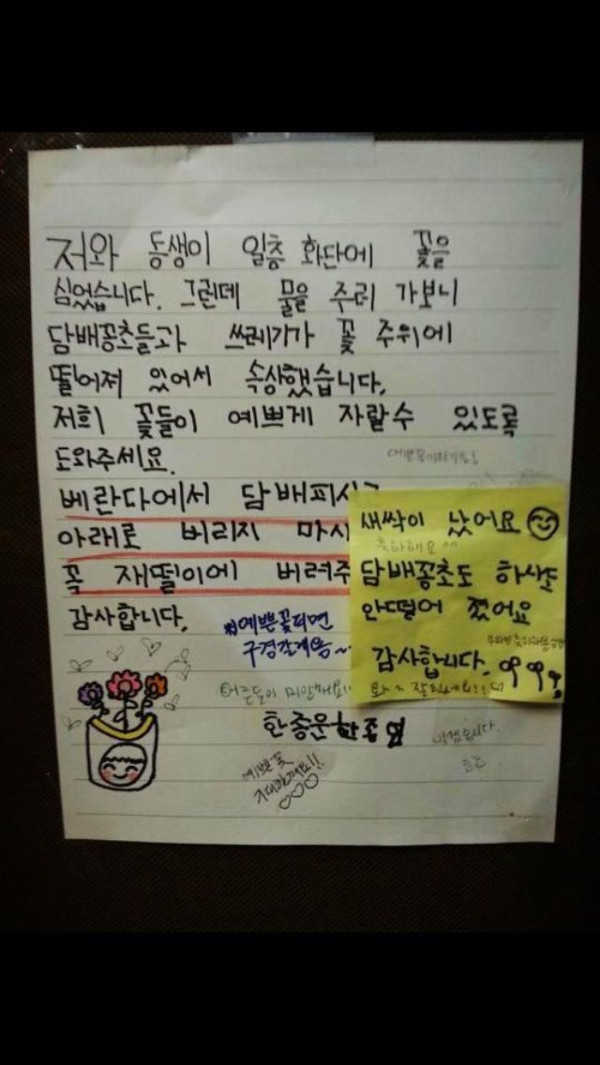 저와 동생이 일층 화단에 꽃을
심었습니다. 그런데 물을 주러 가보니
담배꽁초들과 쓰레기가 꽃 주위에
떨어져 있어서 속상했습니다.
저희 꽃들이 예쁘게 자랄수 있도록
도와주세요.
베란다에서 담배피시고
아래로 버리지 마시
꼭 재떨이에 버려주
감사합니다.
새싹이 났어요
축하해요 ^^
담배꽁초도 하나도
안떨어 졌어요
감사합니다.
예쁜꽃피면
구경갈게용~
어른들이 미안해요
한종운
예쁜꽃
기대할게요!!